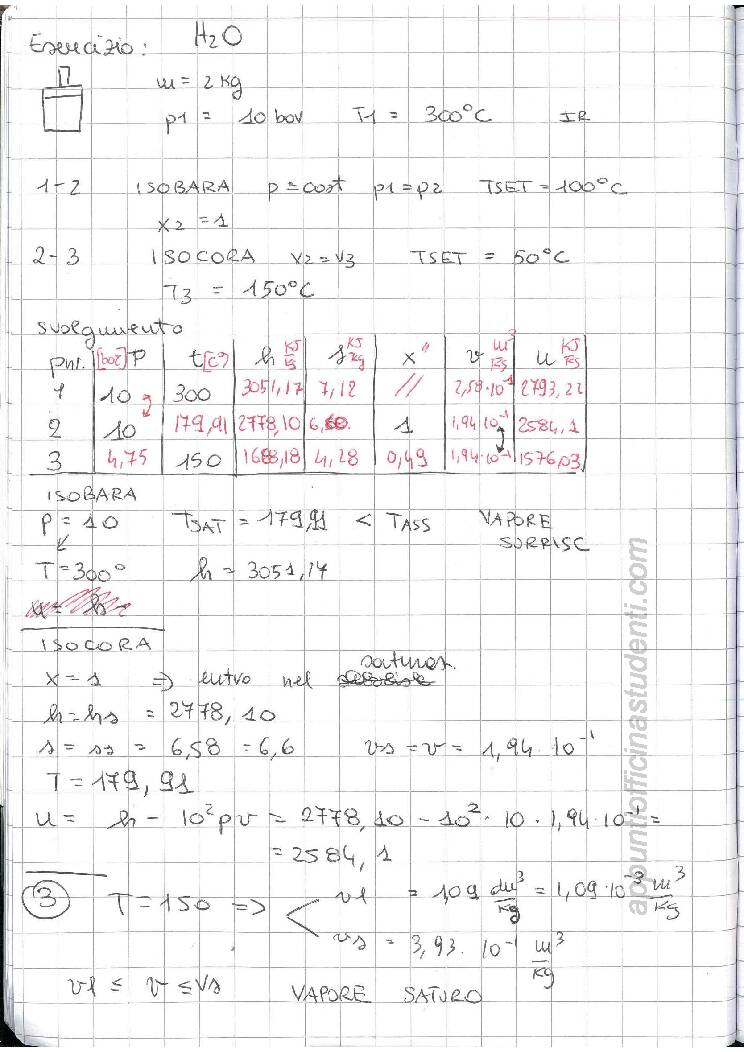 Esercizio: H2O
m = 2 kg
p1 = 10 bar T1 = 300°C IR
1-2 ISOBARA p=cost p1=p2 TSET=100°C
x2 = 1
2-3 ISOCORA v2=v3 TSET = 50°C
T3 = 150°C
svolgimento
pnt. [bar] P t[c°] h KJ/kg s KJ/kg x" v m³/kg u KJ/kg
1 10 300 3051,17 7,12 // 2,58·10⁻¹ 2793,22
2 10 179,91 2778,10 6,60. 1 1,94 10⁻¹ 2584,1
3 4,75 150 1688,18 4,28 0,49 1,94·10⁻¹ 1576,03
ISOBARA
P = 10 TSAT = 179,91 < TASS VAPORE
SURRISC
T=300° h = 3051,17
ISOCORA
x=1 => entro nel saturaz.
h=hs = 2778,10
s = ss = 6,58 = 6,6 vs=v= 1,94·10⁻¹
T=179,91
u = h - 10²pv = 2778,10 - 10²·10·1,94·10⁻¹ =
= 2584,1
3 T=150 => vl = 1,09 dm³/kg = 1,09·10⁻³ m³/kg
vs = 3,93·10⁻¹ m³/kg
vl ≤ v ≤ vs VAPORE SATURO
appuntiofficinastudenti.com